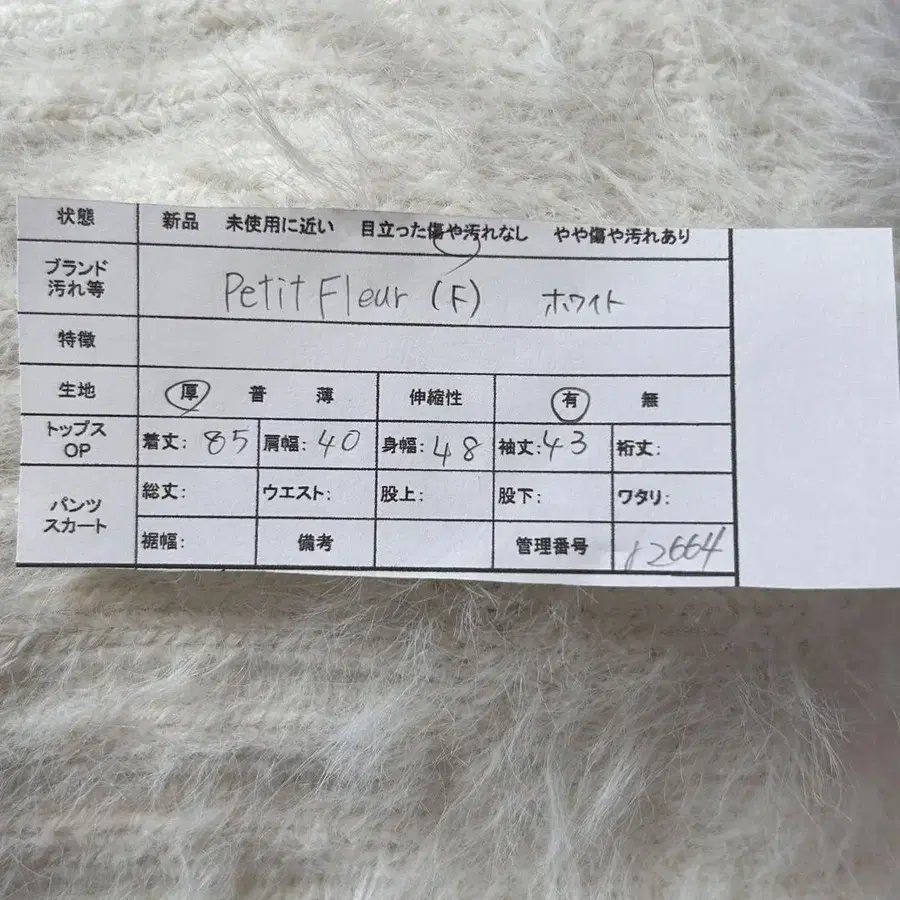 状態 新品 未使用に近い 目立った傷や汚れなし やや傷や汚れあり
ブランド
汚れ等
Petit Fleur (F) ホワイト
特徴
生地 厚 普 薄 伸縮性 有 無
トップス
OP
着丈: 85 肩幅: 40 身幅: 48 袖丈: 43 裄丈:
パンツ
スカート
総丈: ウエスト: 股上: 股下: ワタリ:
裾幅: 備考 管理番号 12664